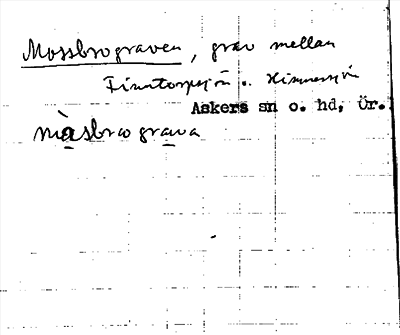 Mossbrograven, grav mellan
Finntorpsjön o. Himmersjön
Askers sn o. hd, Ür.
måsbrograva